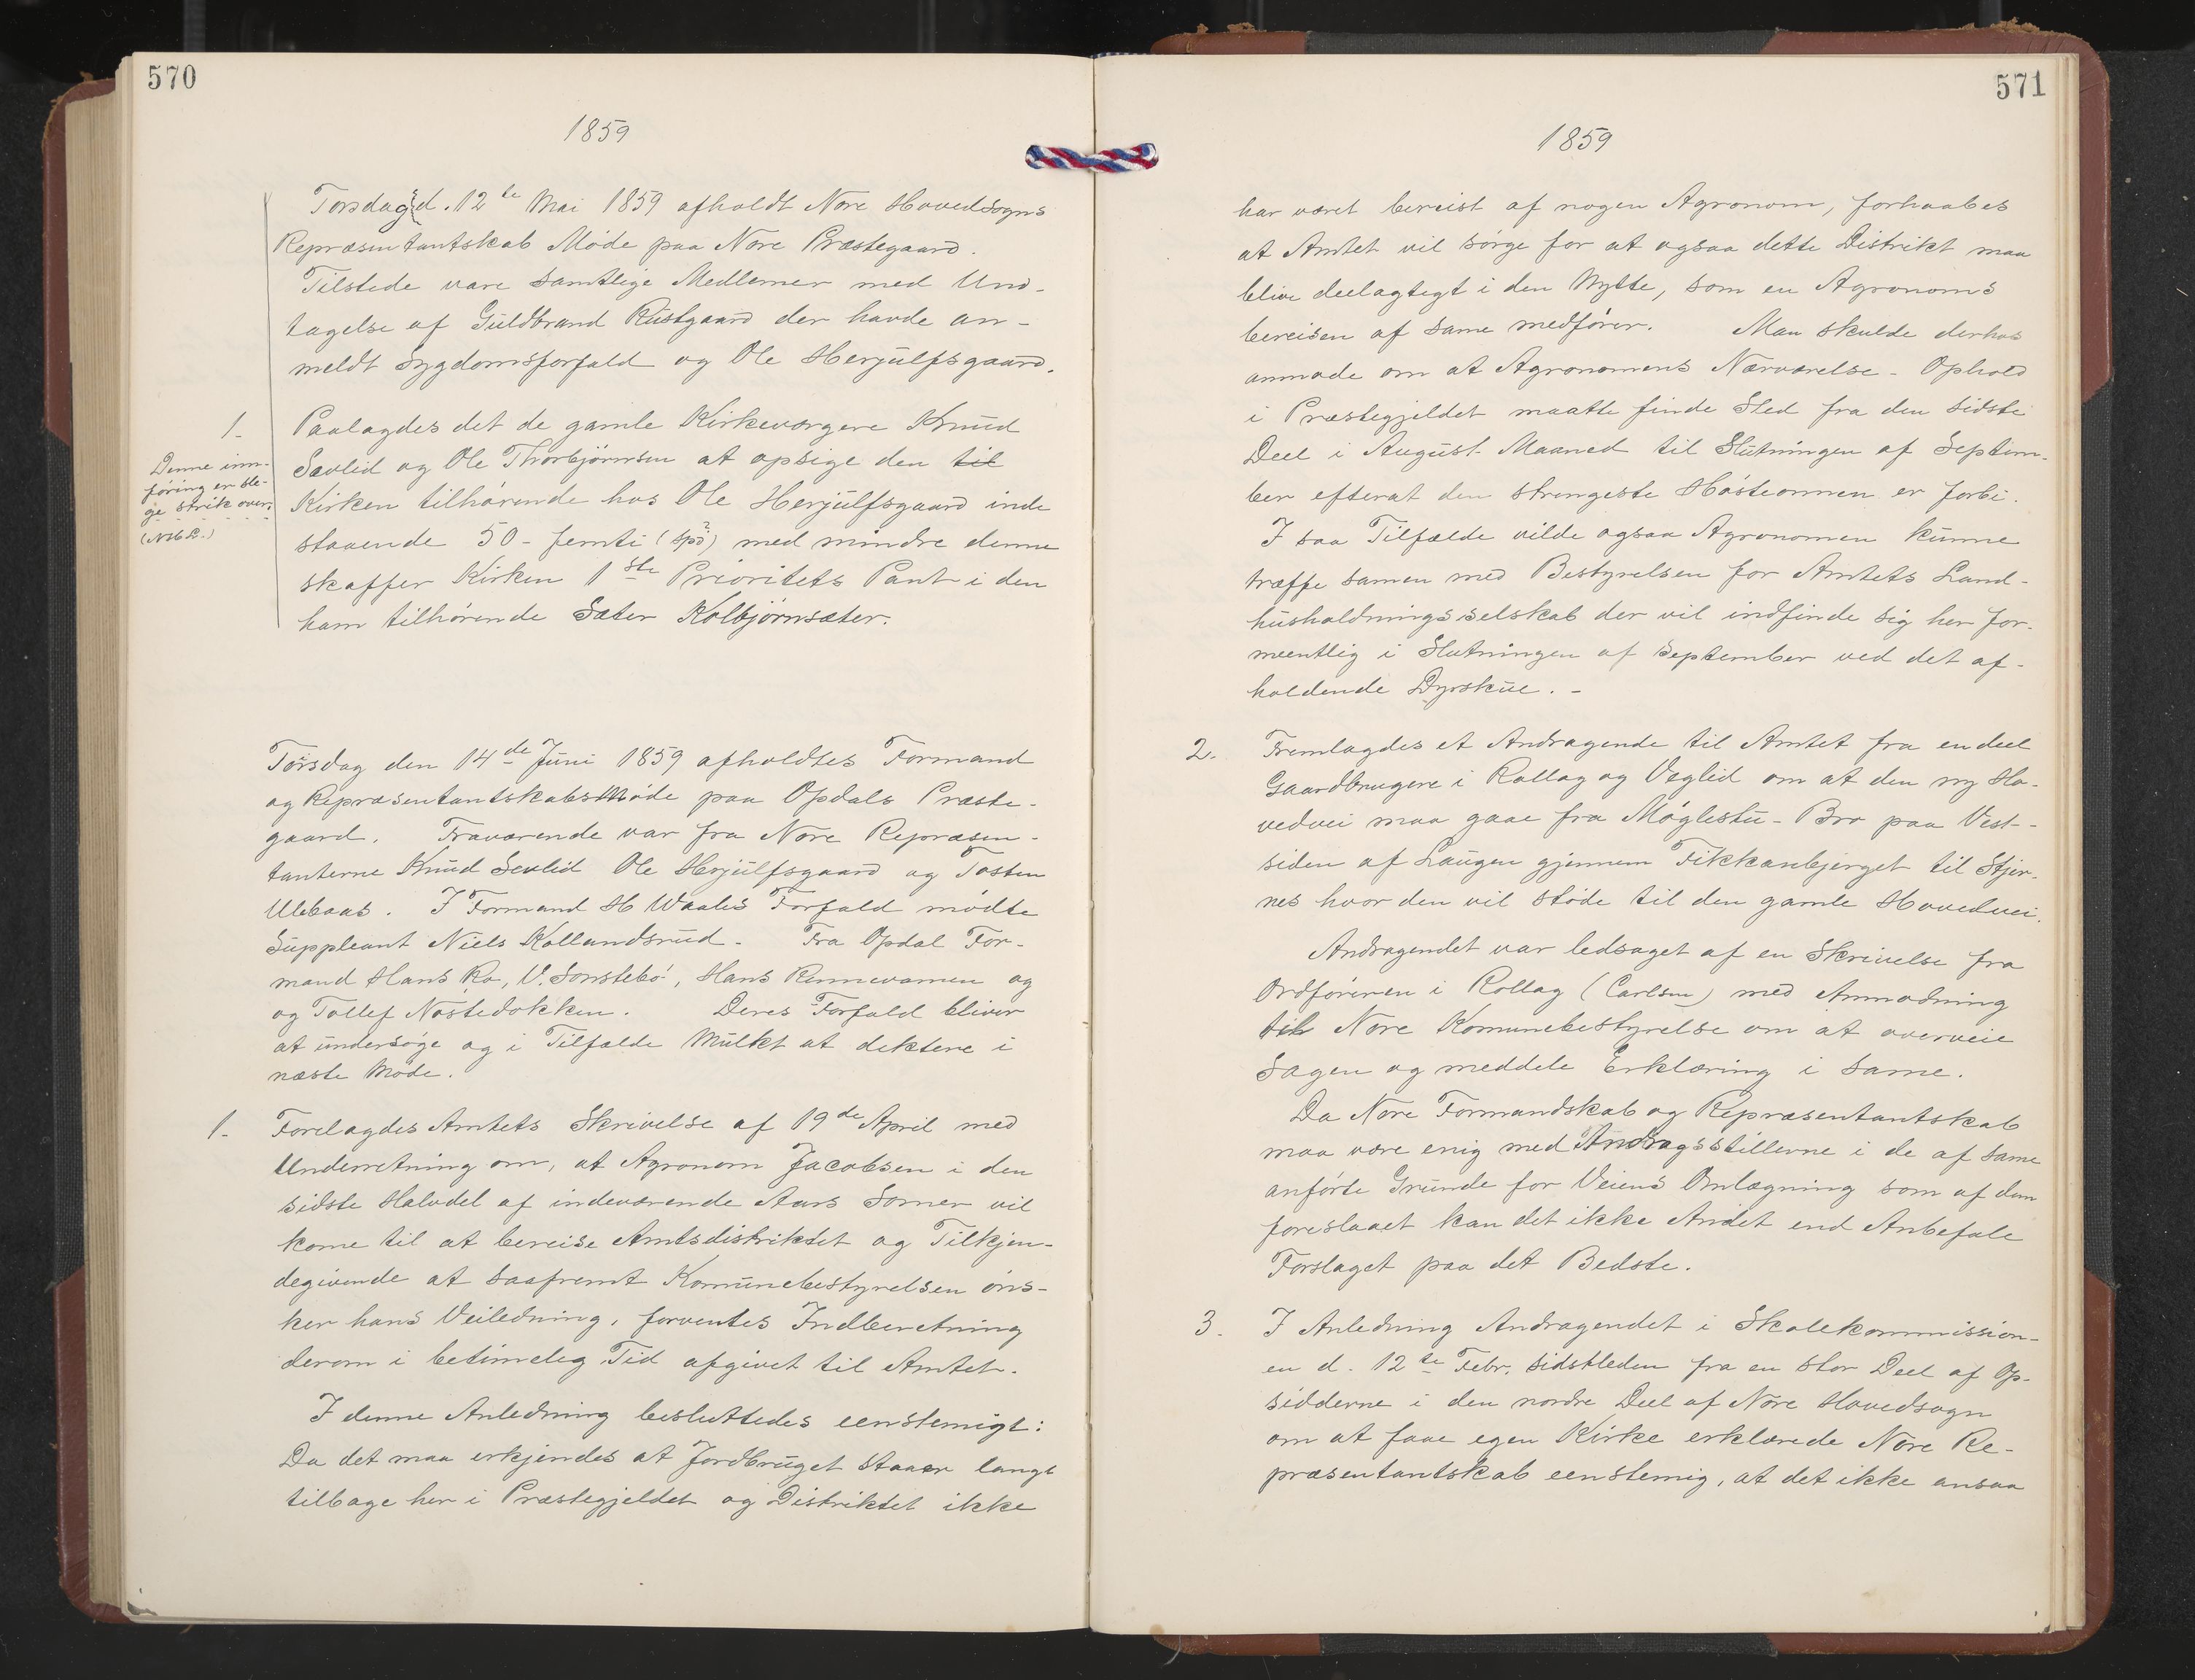 570
1859
Torsdag d. 12te Mai 1859 afholdt Nore Hovedsogns
Repræsentantskab Møde paa Nore Præstegaard.
Tilstede vare samtlige Medlemer med Und-
tagelse af Guldbrand Rustgaard der havde an-
meldt Sygdomsforfald og Ole Herjulfsgaard.
1.
Paalagdes det de gamle Kirkeværgere Knud
Sævlid og Ole Thorbjørnsen at opsige den til
Kirken tilhørende hos Ole Herjulfsgaard inde
staaende 50 - femti (spd?) med mindre denne
skaffer Kirken 1ste Prioritets Pant i den
ham tilhørende Sæter Kolbjørnsæter.
Denne inn-
føring er ble-
ge strik over.
Torsdag den 14de Juni 1859 afholdtes Formand
og RepræsentantskabsMøde paa Opdals Præste-
gaard. Fraværende var fra Nore Repræsen-
tanterne Knud Sevlid Ole Herjulfsgaard og Tosten
Ulebaas. I Formand H Waales Forfald mødte
Suppleant Niels Kollandsrud. Fra Opdal For-
mand Hans Ro, V. Sønstebø, Hans Rennevamen og
og Tollef Nøstedokken. Deres Forfald bliver
at undersøge og i Tilfælde Mulkt at diktere i
næste Møde.
1.
Forelagdes Amtets Skrivelse af 19de April med
Underretning om, at Agronom Jacobsen i den
sidste Halvdel af indeværende Aars Somer vil
kome til at bereise Amtsdistriktet og Tilkjen-
degivende at saafremt Komunebestyrelsen øns-
ker hans Veiledning, forventes Indberetning
derom i betimelig Tid afgivet til Amtet.
I denne Anledning besluttedes eenstemigt:
Da det maa erkjendes at Jordbruget staaer langt
tilbage her i Præstegjeldet og Distriktet ikke
571
1859
har været bereist af nogen Agronom, forhaabes
at Amtet vil sørge for at ogsaa dette Distrikt maa
blive deelagtigt i den Nytte, som en Agronoms
bereisen af same medfører. Man skulde derhos
anmode om at Agronomens Nærværelse - Ophold
i Præstegjeldet maatte finde Sted fra den sidste
Deel i August Maaned til Slutningen af Septem-
ber efterat den strengeste Høsteonnen er forbi.
I saa Tilfælde vilde ogsaa Agronomen kunne
træffe samen med Bestyrelsen for Amtets Land-
husholdningsselskab der vil indfinde sig her for-
meentlig i Slutningen af September ved det af-
holdende Dyrskue. -
2.
Fremlagdes et Andragende til Amtet fra endeel
Gaardbrugere i Rollag og Veglid om at den ny Ho-
vedvei maa gaae fra Møglestu - Bro paa Vest-
siden af Laugen gjennem Fikkanbjerget til Stjer-
nes hvor den vil støde til den gamle Hovedvei.
Andragendet var ledsaget af en Skrivelse fra
Ordføreren i Rollag (Carlsen) med Anmodning
til Nore Komunebestyrelse om at overveie
Sagen og meddele Erklæring i same.
Da Nore Formandskab og Repræsentantskab
maa være enig med Andragsstillerne i de af same
anførte Grunde for Veiens Omlægning som af dem
foreslaaet kan det ikke Andet end Anbefale
Forslaget paa det Bedste.
3.
I Anledning Andragendet i Skolekommission-
en d. 12te Febr. sidstleden fra en stor Deel af Op-
sidderne i den nordre Deel af Nore Hovedsogn
om at faae egen Kirke erklærede Nore Re-
præsentantskab eenstemig, at det ikke ansaa